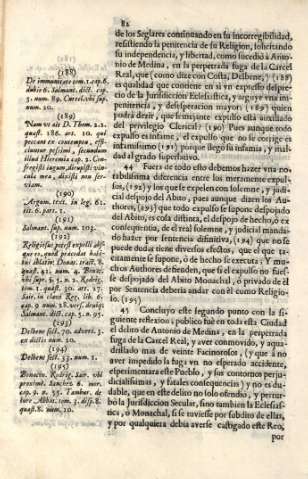 82
de los Seglares continuando en su incorregibilidad,
resistiendo la penitencia de su Religion, solicitando
su independencia, y libertad, como sucediò à Antonio
de Medina, en la perpetrada fuga de la Carcel
Real, que (como dize con Costa, Delbene,) (188)
es qualidad que contiene en si un expresso desprecio
de la Jurisdiccion Eclesiastica, y arguye una impenitencia,
y desesperacion mayor: (189) quien
podrà dezir, que semejante expulso està auxiliado
del privilegio Clerical? (190) Pues aunque todo
expulso es infame, el expulso que no se corrige es
infamissimo (191) porque llegò su infamia, y maldad
al grado superlativo.
44 Fuera de todo esto debemos hazer una notabilissima
diferencia entre los meramente expulsos,
(192) y los que se expelen con solemne, y judicial
despojo del Abito, pues aunque dizen los Authores,
(193) que todo expulso se supone despojado
del Abito, es cosa distinta, el despojo de hecho, ò ex
consequentia, de el real solemne, y judicial mandado
hazer por sentencia difinitiva, (194) que no se
puede dudar tiene diversos efectos, que el que tacitamente
se supone, ò de hecho se executa. Y muchos
Authores defienden, que si el expulso no fuesse
despojado del Abito Monachal, ò privado de èl
por Sentencia deberia andar con èl como Religioso.
(195)
45 Concluyo este segundo punto con la siguiente
reflexion: publico fuè en toda esta Ciudad
el delito de Antonio de Medina, en la perpetrada
fuga de la Carcel Real, y aver conmovido, y aquadrillado
mas de veinte Facinorosos, (y que à no
aver impedido la fuga un no esperado accidente,
experimentara este Pueblo, y sus contornos perjudicialissimas,
y fatales consequencias) y no es dudable,
que en este delito no solo ofendiò, y perturbò
la Jurisdiccion Secular, sino tambien la Eclesiastica,
ò Monachal, si se tuviesse por subdito de ellas,
y por qualquiera debia averse castigado este Reo,
por
(188)
De immunitate tom. 1. cap. 6.
dubit. 6. Salmant. dict. cap.
3. num. 89.
num. 20.
(189)
Nam ut ait D. Thom. 2. 2.
quæst. 186. art. 10. qui
peccat ex contemptu,
pessimus, secundum
illud Hieremiæ cap. 2. Confregisti
jugum, dirupisti vincula
mea, dixisti non serviam.
(190)
Argum. text. in leg. 61.
tit. 6. part. 1.
(191)
Salmant. sup. num. 103.
(192)
Religiosus potest expelli absque
eo, quod privetur habitu
quæst. 41. num. 4.
(193)
Delbene sect. 20.
ex dictis num. 20.
(194)
Delbene sect. 33. num. 2.
(195)
Sanchez 6. mor.
cap. 9. n. 35. Tambur. de
iure Abbat. tom. 3. disp. 8.
quæst. 8. num. 10.